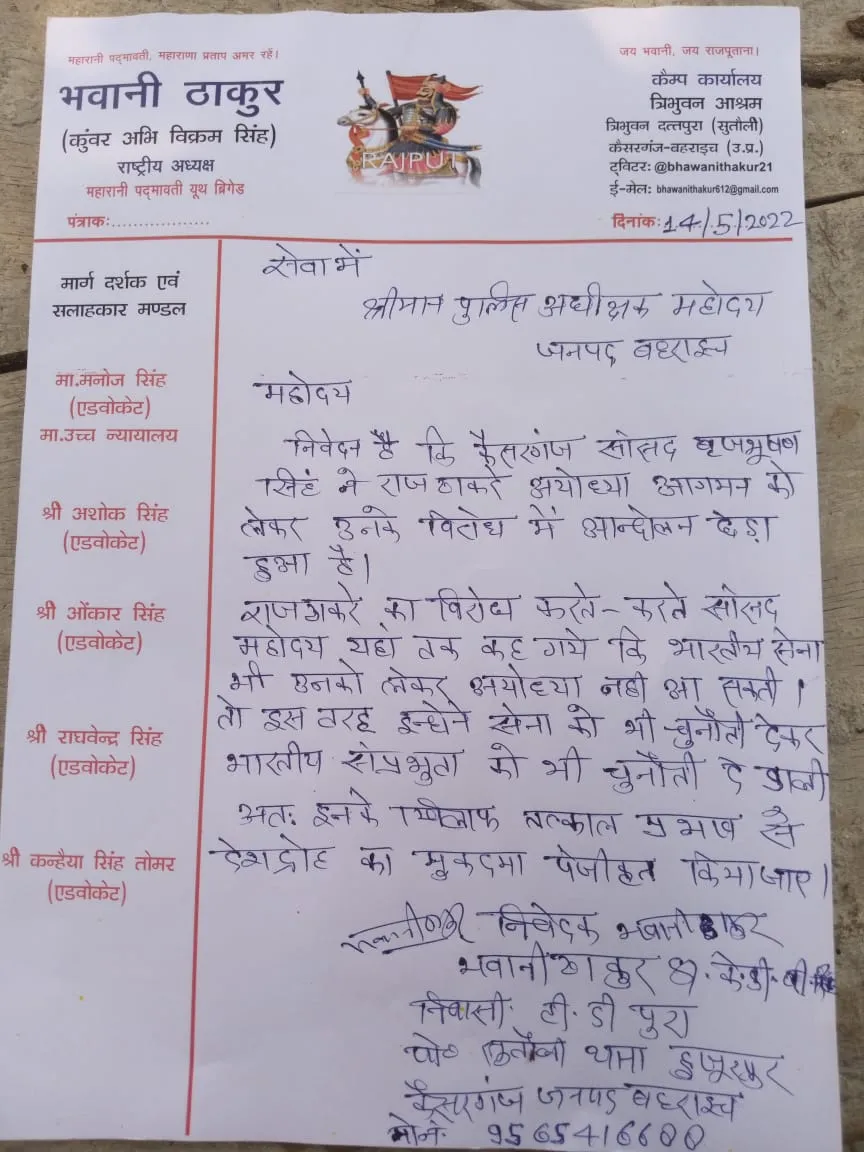 महारानी पद्मावती, महाराणा प्रताप अमर रहें।
जय भवानी, जय राजपूताना।
भवानी ठाकुर
(कुंवर अभि विक्रम सिंह)
राष्ट्रीय अध्यक्ष
महारानी पद्मावती यूथ ब्रिगेड
पंत्राकः..................
RAJPUT
कैम्प कार्यालय
त्रिभुवन आश्रम
त्रिभुवन दत्तपुरा (सुतौली)
कैसरगंज-बहराइच (उ.प्र.)
ट्विटर: @bhawanithakur21
ई-मेल: bhawanithakur612@gmail.com
दिनांक: 14/5/2022
मार्ग दर्शक एवं
सलाहकार मण्डल
मा.मनोज सिंह
(एडवोकेट)
मा.उच्च न्यायालय
श्री अशोक सिंह
(एडवोकेट)
श्री ओंकार सिंह
(एडवोकेट)
श्री राघवेन्द्र सिंह
(एडवोकेट)
श्री कन्हैया सिंह तोमर
(एडवोकेट)
सेवा में
श्रीमान पुलिस अधीक्षक महोदय
जनपद बहराइच
महोदय
निवेदन है कि कैसरगंज सांसद बृजभूषण
सिंह ने राज ठाकरे अयोध्या आगमन को
लेकर उनके विरोध में आन्दोलन छेड़ा
हुआ है।
राज ठाकरे का विरोध करते-करते सांसद
महोदय यहां तक कह गये कि भारतीय सेना
भी उनको लेकर अयोध्या नही आ सकती।
तो इस तरह इन्होने सेना को भी चुनौती देकर
भारतीय संप्रभुता को भी चुनौती दे डाली
अतः इनके खिलाफ तत्काल प्रभाव से
देशद्रोह का मुकदमा पंजीकृत किया जाए।
निवेदक भवानी ठाकुर
भवानी ठाकुर
निवासी. टी. डी पुरा
पो० सुतौली थाना हुजूरपुर
कैसरगंज जनपद बहराइच
मोन: 9565416600